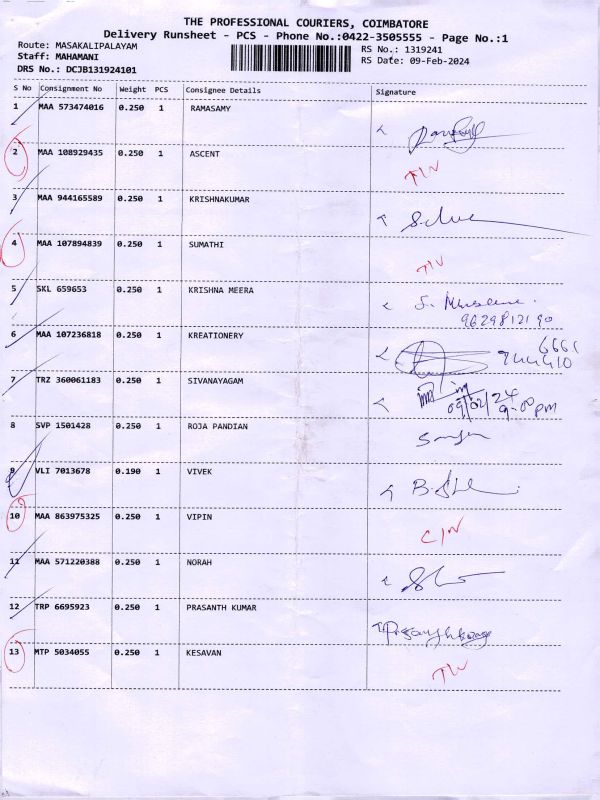 THE PROFESSIONAL COURIERS, COIMBATORE
Delivery Runsheet - PCS - Phone No.:0422-3505555 - Page No.:1
Route: MASAKALIPALAYAM
Staff: MAHAMANI
DRS No.: DCJB131924101
RS No.: 1319241
RS Date: 09-Feb-2024
S No Consignment No Weight PCS Consignee Details Signature
1 MAA 573474016 0.250 1 RAMASAMY
2 MAA 108929435 0.250 1 ASCENT
3 MAA 944165589 0.250 1 KRISHNAKUMAR
4 MAA 107894839 0.250 1 SUMATHI
5 SKL 659653 0.250 1 KRISHNA MEERA
9629812190
6 MAA 107236818 0.250 1 KREATIONERY
7 TRZ 360061183 0.250 1 SIVANAYAGAM
09/02/24
9:00 pm
8 SVP 1501428 0.250 1 ROJA PANDIAN
9 VLI 7013678 0.190 1 VIVEK
10 MAA 863975325 0.250 1 VIPIN
C/N
11 MAA 571220388 0.250 1 NORAH
12 TRP 6695923 0.250 1 PRASANTH KUMAR
13 MTP 5034055 0.250 1 KESAVAN